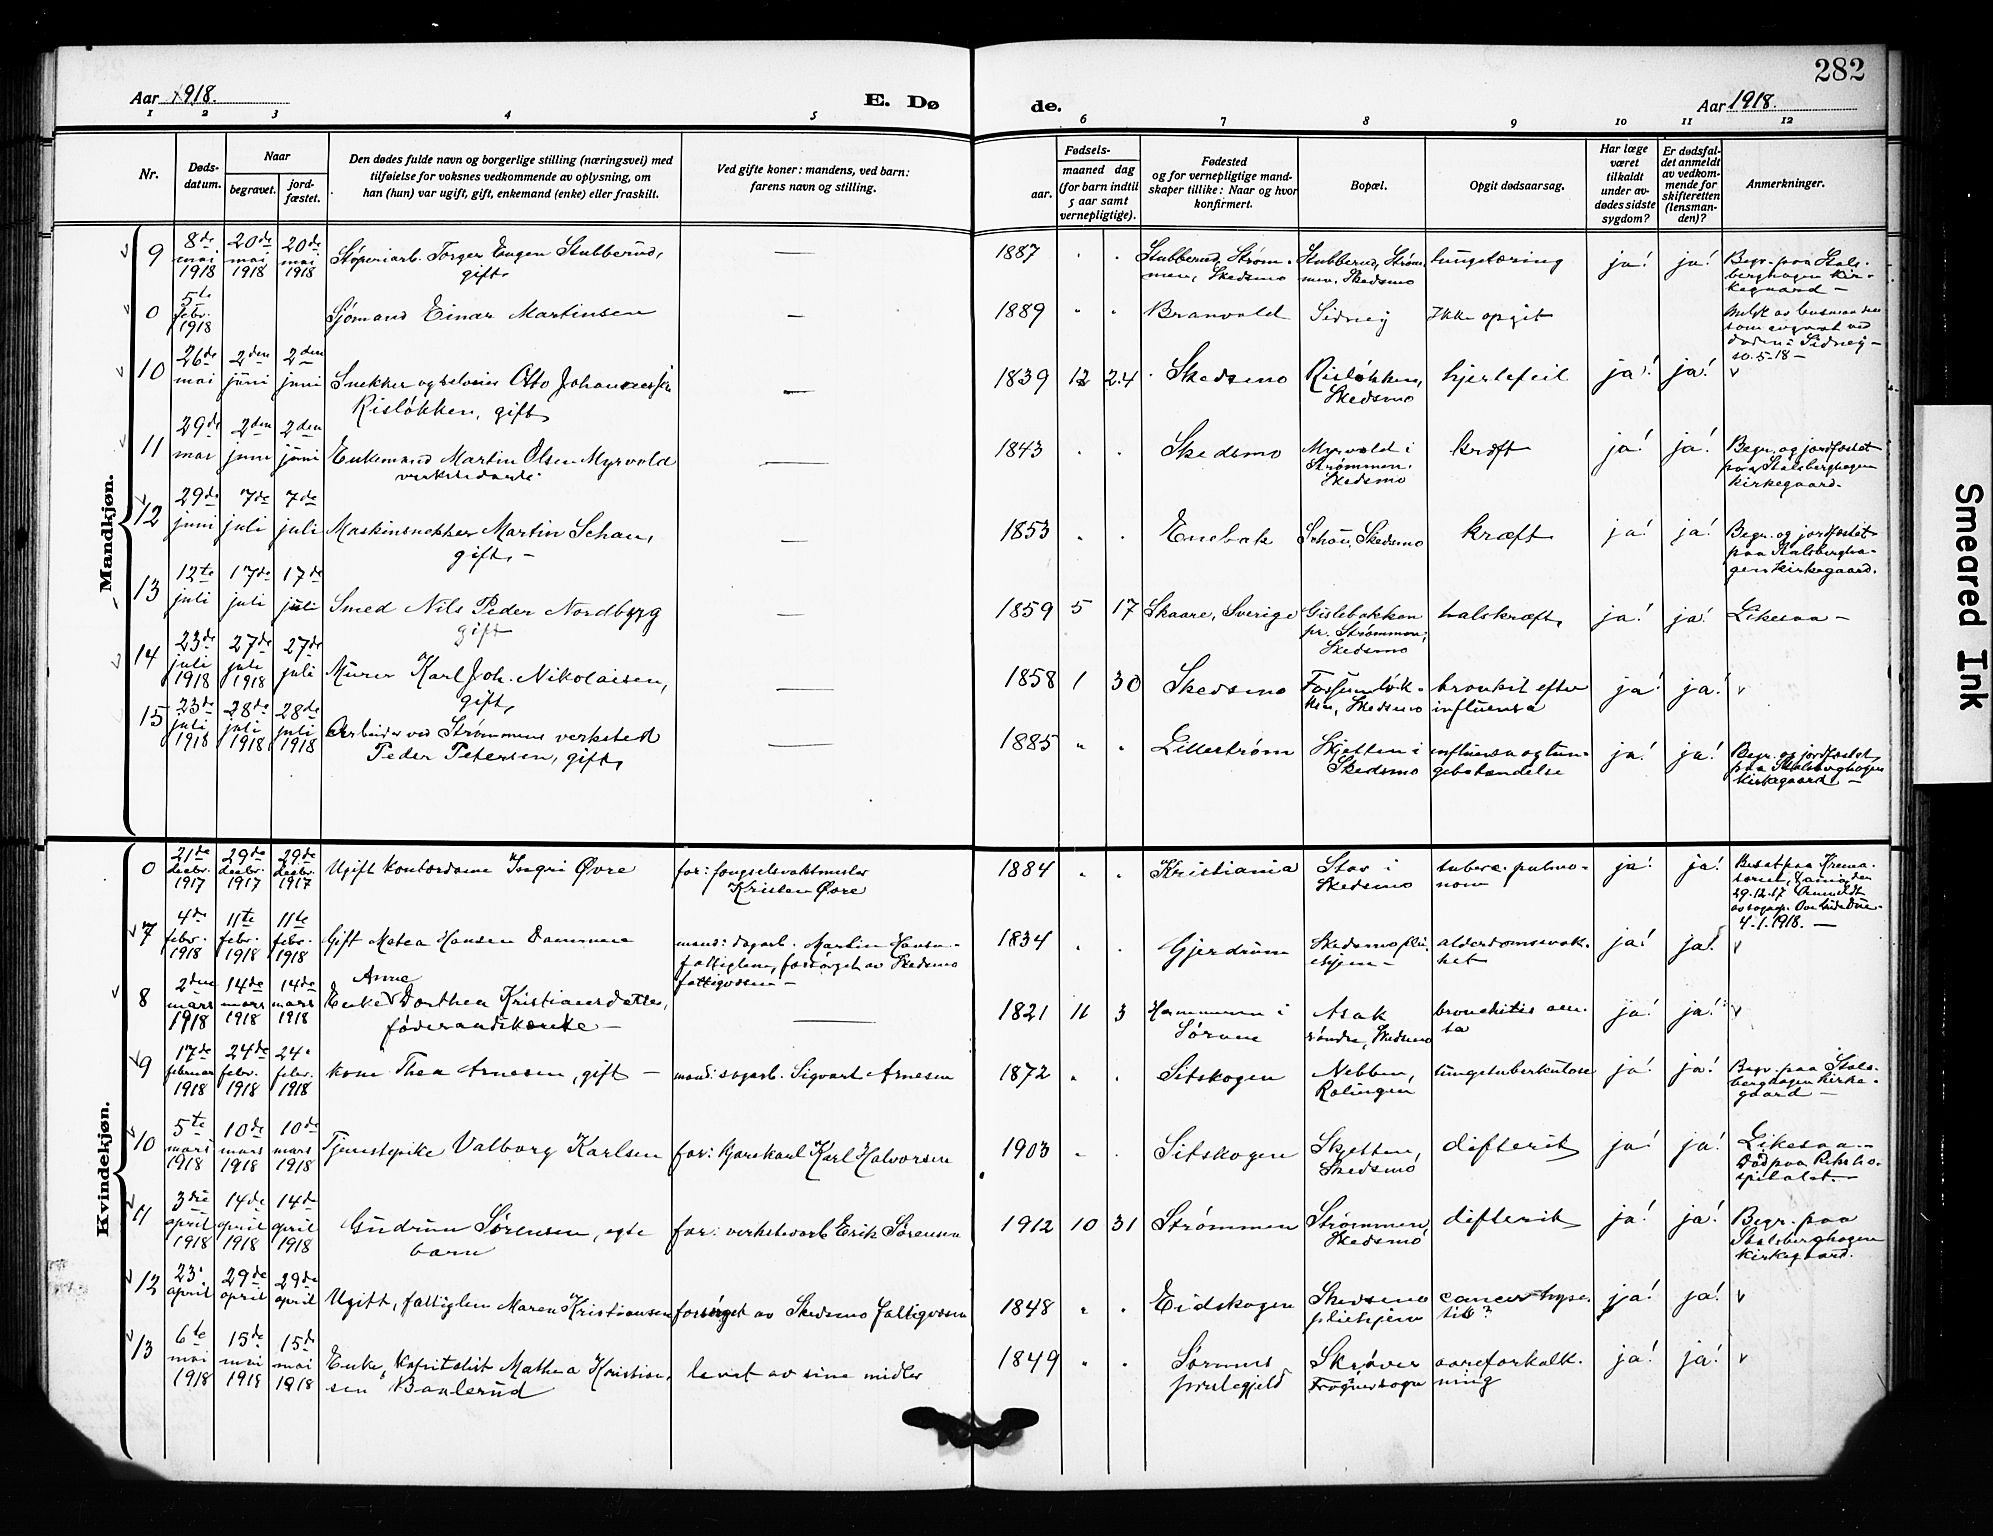 282
Aar 1918.
E. Dø
de.
Aar 1918.
1 2 3 4 5 6 7 8 9 10 11 12
Nr.
Døds-
datum.
Naar
begravet.
jord-
fæstet.
Den dødes fulde navn og borgerlige stilling (næringsvei) med
tilføielse for voksnes vedkommende av oplysning, om
han (hun) var ugift, gift, enkemand (enke) eller fraskilt.
Ved gifte koner: mandens, ved barn:
farens navn og stilling.
Fødsels-
aar.
maaned dag
(for barn indtil
5 aar samt
vernepligtige).
Fødested
og for vernepligtige mand-
skaper tillike: Naar og hvor
konfirmert.
Bopæl.
Opgit dødsaarsag.
Har læge
været
tilkaldt
under av-
dødes sidste
sygdom?
Er dødsfal-
det anmeldt
av vedkom-
mende for
skifteretten
(lensman-
den)?
Anmerkninger.
Mandkjøn.
9 8de mai 1918 20de mai 1918 20de mai 1918
Støperiarb. Torger Eugen Stubberud,
gift,
—
1887 " "
Stubberud, Strøm-
men, Skedsmo
Stubberud, Strøm-
men, Skedsmo
lungetæring
ja! ja!
Begr. paa Stals-
berghagen kir-
kegaard —
0 5te febr. 1918
Sjømand Einar Martinsen
—
1889 " "
Branvold
Sidney
Ikke opgit
som avgaat ved
døden i Sidney —
10.5.18 —
10 26de mai 2den juni 2den juni
Snekker og selveier Otto Johannessen
Risløkken, gift,
—
1839 12 24
Skedsmo
Risløkken,
Skedsmo
hjertefeil
ja! ja! "
11 29de mai 2den juni 2den juni
Enkemand Martin Olsen Myrvold
verkstedarb.
—
1843 " "
Skedsmo
Myrvold i
Strømmen,
Skedsmo
kræft
ja! ja!
Begr. og jordfæstet
paa Stalsberghagen
kirkegaard.
12 29de juni 7de juli 7de juli
Maskinsnekker Martin Schau,
gift, —
—
1853 " "
Enebak
Schau, Skedsmo
kræft
ja! ja!
Begr. og jordfæstet
paa Stalsbergha-
gen kirkegaard.
13 12te juli 17de juli 17de juli
Smed Nils Peder Nordberg
gift
—
1859 5 17
Skaare, Sverige
Gislebakken
pr. Strømmen,
Skedsmo
halskræft,
ja! ja!
Likesaa —
14 23de juli 1918 27de juli 1918 27de juli
Murer Karl Joh. Nikolaisen,
gift,
—
1858 1 30
Skedsmo
ken, Skedsmo
bronkit efter
influensa
ja! ja! "
15 23de juli 1918 28de juli 1918 28de juli 1918
Arbeider ved Strømmens verksted
Peder Petersen, gift,
—
1885 " "
Lillestrøm
Skjetten i
Skedsmo
influensa og lun-
gebetændelse
ja! ja!
Begr. og jordfæstet
paa Stalsberghagen
kirkegaard —
Kvindekjøn.
0 21de decbr. 1917 29de decbr. 1917 29de decbr. 1917
Ugift kontordame Ingri Øvre
far: fængselsvaktmester
Kristen Øvre
1884 " "
Kristiania
Stav i
Skedsmo
tuberc. pulmo-
num
ja! ja!
Besat paa Krema-
toriet, Kania den
29.12.17 Anmeldt
4.1.1918. —
7 4de febr. 1918 11te febr. 1918 11te febr. 1918
Gift Matea Hansen Dammen
mand: dagarb. Martin Hansen —
fattiglem, forsørget av Skedsmo
fattigvæsen —
1834 " "
Gjerdrum
Skedsmo plei-
ehjem —
alderdomssvak-
het
ja! ja! "
8 2den mars 1918 14de mars 1918 14de mars 1918
Anne
Enke Dorthea Kristiansdatter,
føderaadskone —
—
1821 11 3
Hammeren i
Sørum
Asak
søndre, Skedsmo
bronchitis acu-
ta
ja! ja! "
9 17de februar 1918 24de febr. 1918 24. febr. 1918
kone Thea Arnesen, gift —
mand: sagarb. Sigvart Arnesen
1872 " "
Sitskogen
Nebben,
Rælingen
lungetuberkulose
ja! ja!
Begr. paa Stals-
berghagen kirke-
gaard —
10 5te mars 1918 10de mars 1918 10de mars 1918
Tjenestepike Valborg Karlsen
far: kjørekarl Karl Halvorsen
1903 " "
Sitskogen
Skjetten,
Skedsmo
difterit,
ja! ja!
Likesaa —
Død paa Rikshos-
pitalet. —
11 3die april 1918 14de april 1918 14de april 1918
Gudrun Sørensen, egte
barn
far: verkstedarb. Erik Sørensen
1912 10 31
Strømmen
Strømmen,
Skedsmo
difterit
ja! ja!
Begr. paa
Stalsberghagen
kirkegaard.
12 23. april 29de april 29de april
Ugift, fattiglem Maren Kristiansen
forsørget av Skedsmo fattigvæsen
1848 " "
Eidskogen
Skedsmo
pleiehjem
cancer hepa-
tik?
ja! ja! "
13 6te mai 1918 15de mai 1918 15de mai 1918
Enke, kapitalist Mathea Kristian-
sen Baalerud
levet av sine midler
1849 " "
Sørums
prestegjeld
Skrøver
Frognersogn
aareforkalk-
ning
ja! ja! "
Smeared Ink